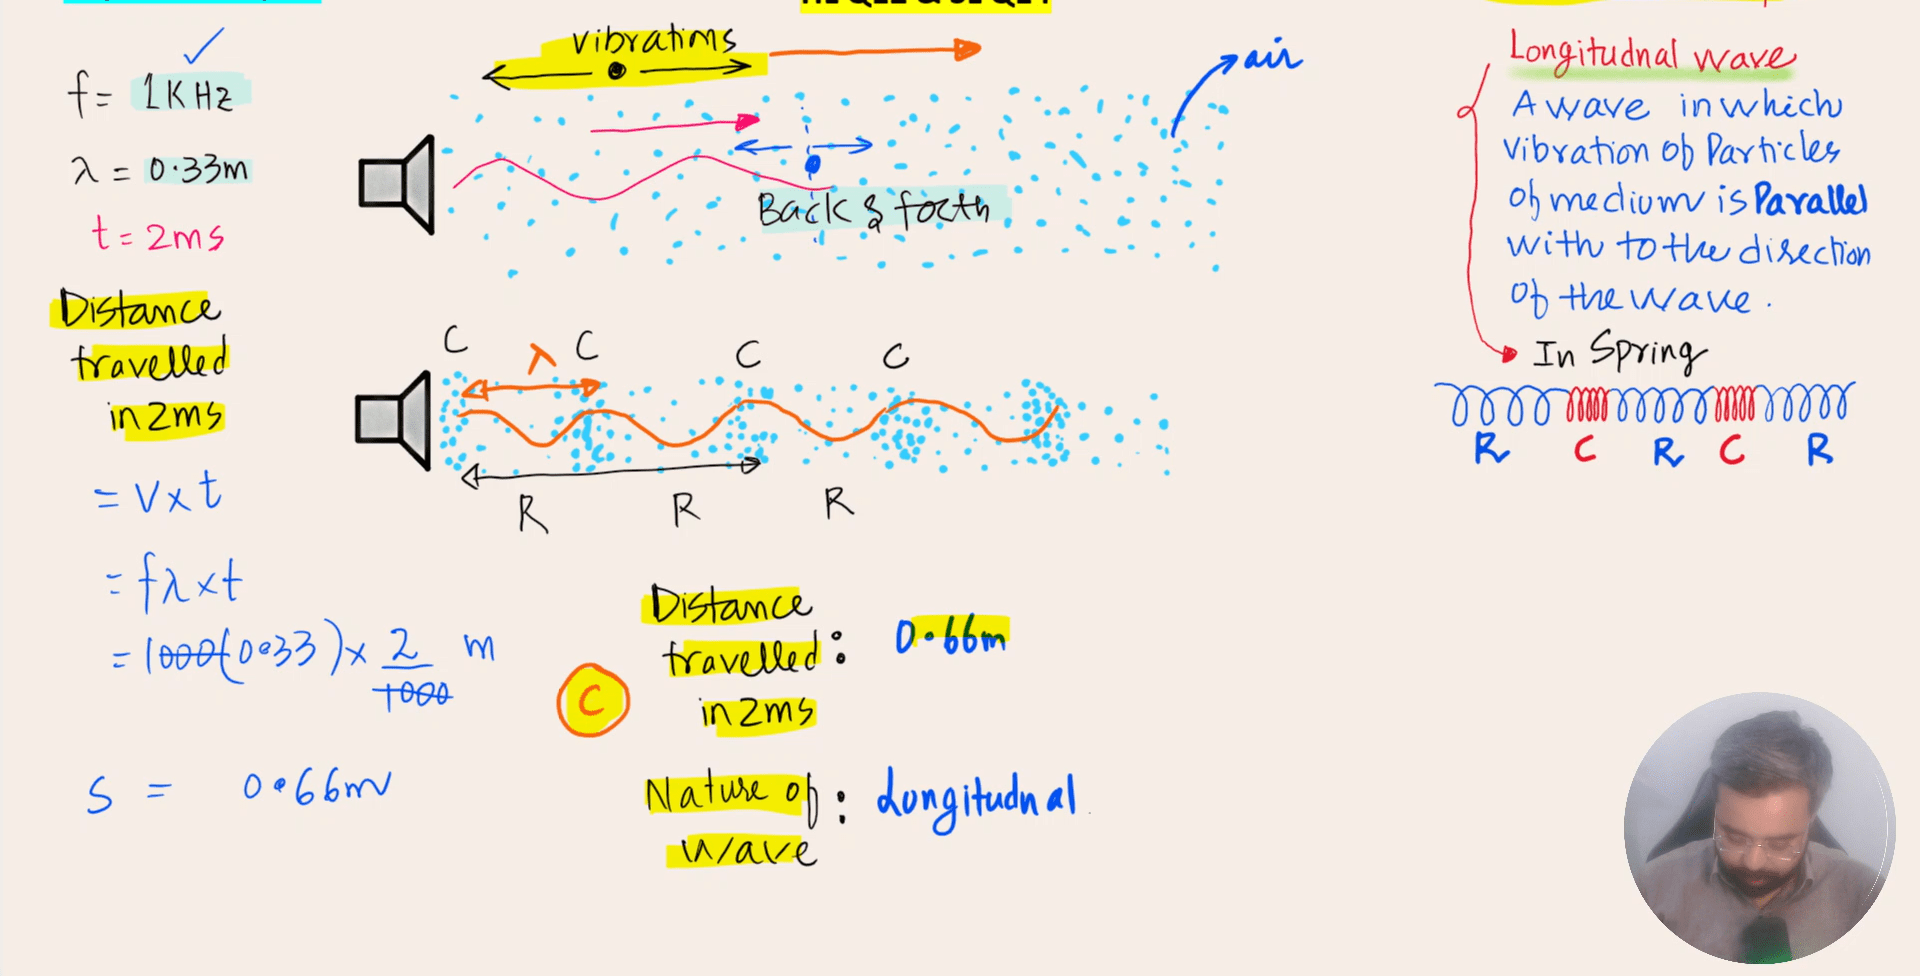 f = 1KHz
λ = 0.33m
t = 2ms
Distance
travelled
in 2ms
= V x t
= fλ x t
= 1000(0.33) x 2/1000 m
S = 0.66m
vibrations
air
Back & forth
C C C C
λ
R R R
C
Distance
travelled :
in 2ms
0.66m
Nature of :
wave
Longitudnal
Longitudnal wave
A wave in which
vibration of Particles
of medium is Parallel
with to the direction
of the wave.
In Spring
R C R C R